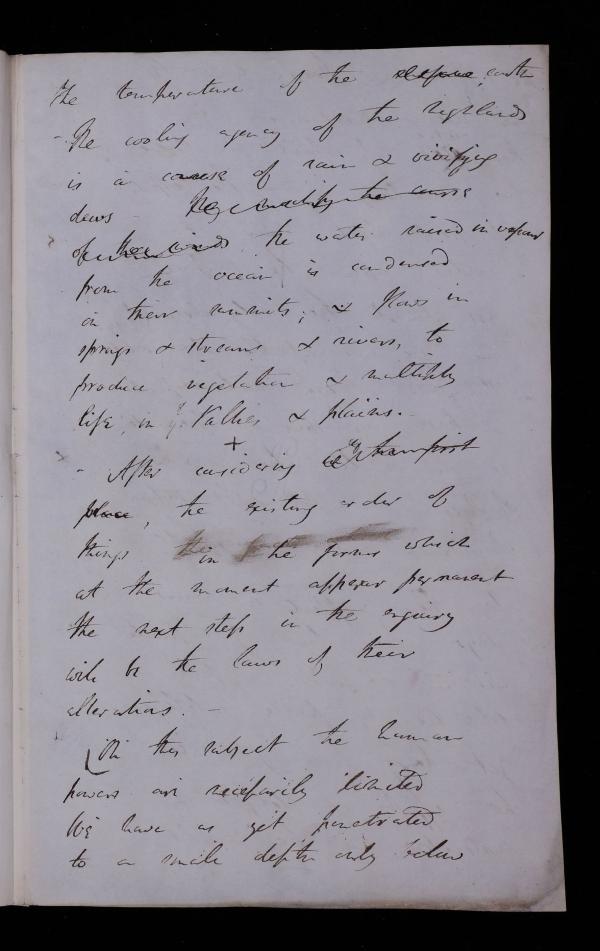 the temperature of the surface earth
- The cooling agency of the highlands
is a cause of rain & vivifying
dews - They modify the causes
of the winds the water raised in vapour
from the ocean is condensed
on their summits; & flows in
springs & streams & rivers, to
produce vegetation & multiply
life, in ye Vallies & plains. -
+
- After considering
place, the existing order of
things in the forms which
at the moment appear permanent
the next step in the enquiry
will be the laws of their
alterations. -
On this subject the human
powers are necessarily limited
We have as yet penetrated
to a small depth only below